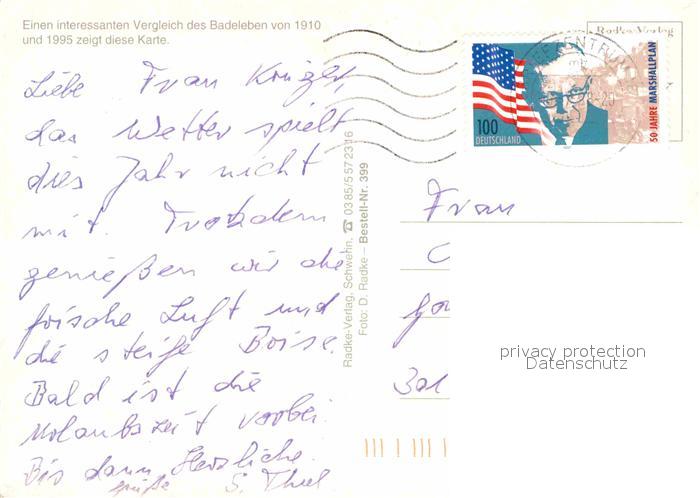 Einen interessanten Vergleich des Badeleben von 1910
und 1995 zeigt diese Karte.
Liebe Frau Krüger,
das Wetter spielt
dies Jahr nicht
mit. Trotzdem
genießen wir die
frische Luft und
die steife Brise.
Bald ist die
Urlaubszeit vorbei.
Bis dann Herzliche
Grüße S. Thiel
Radke-Verlag, Schwerin, ☎ 0385/5572316
Foto: D. Radke – Bestell-Nr. 399
Radke-Verlag
BRIEFZENTRUM
100
DEUTSCHLAND
50 JAHRE MARSHALLPLAN
Frau
privacy protection
Datenschutz